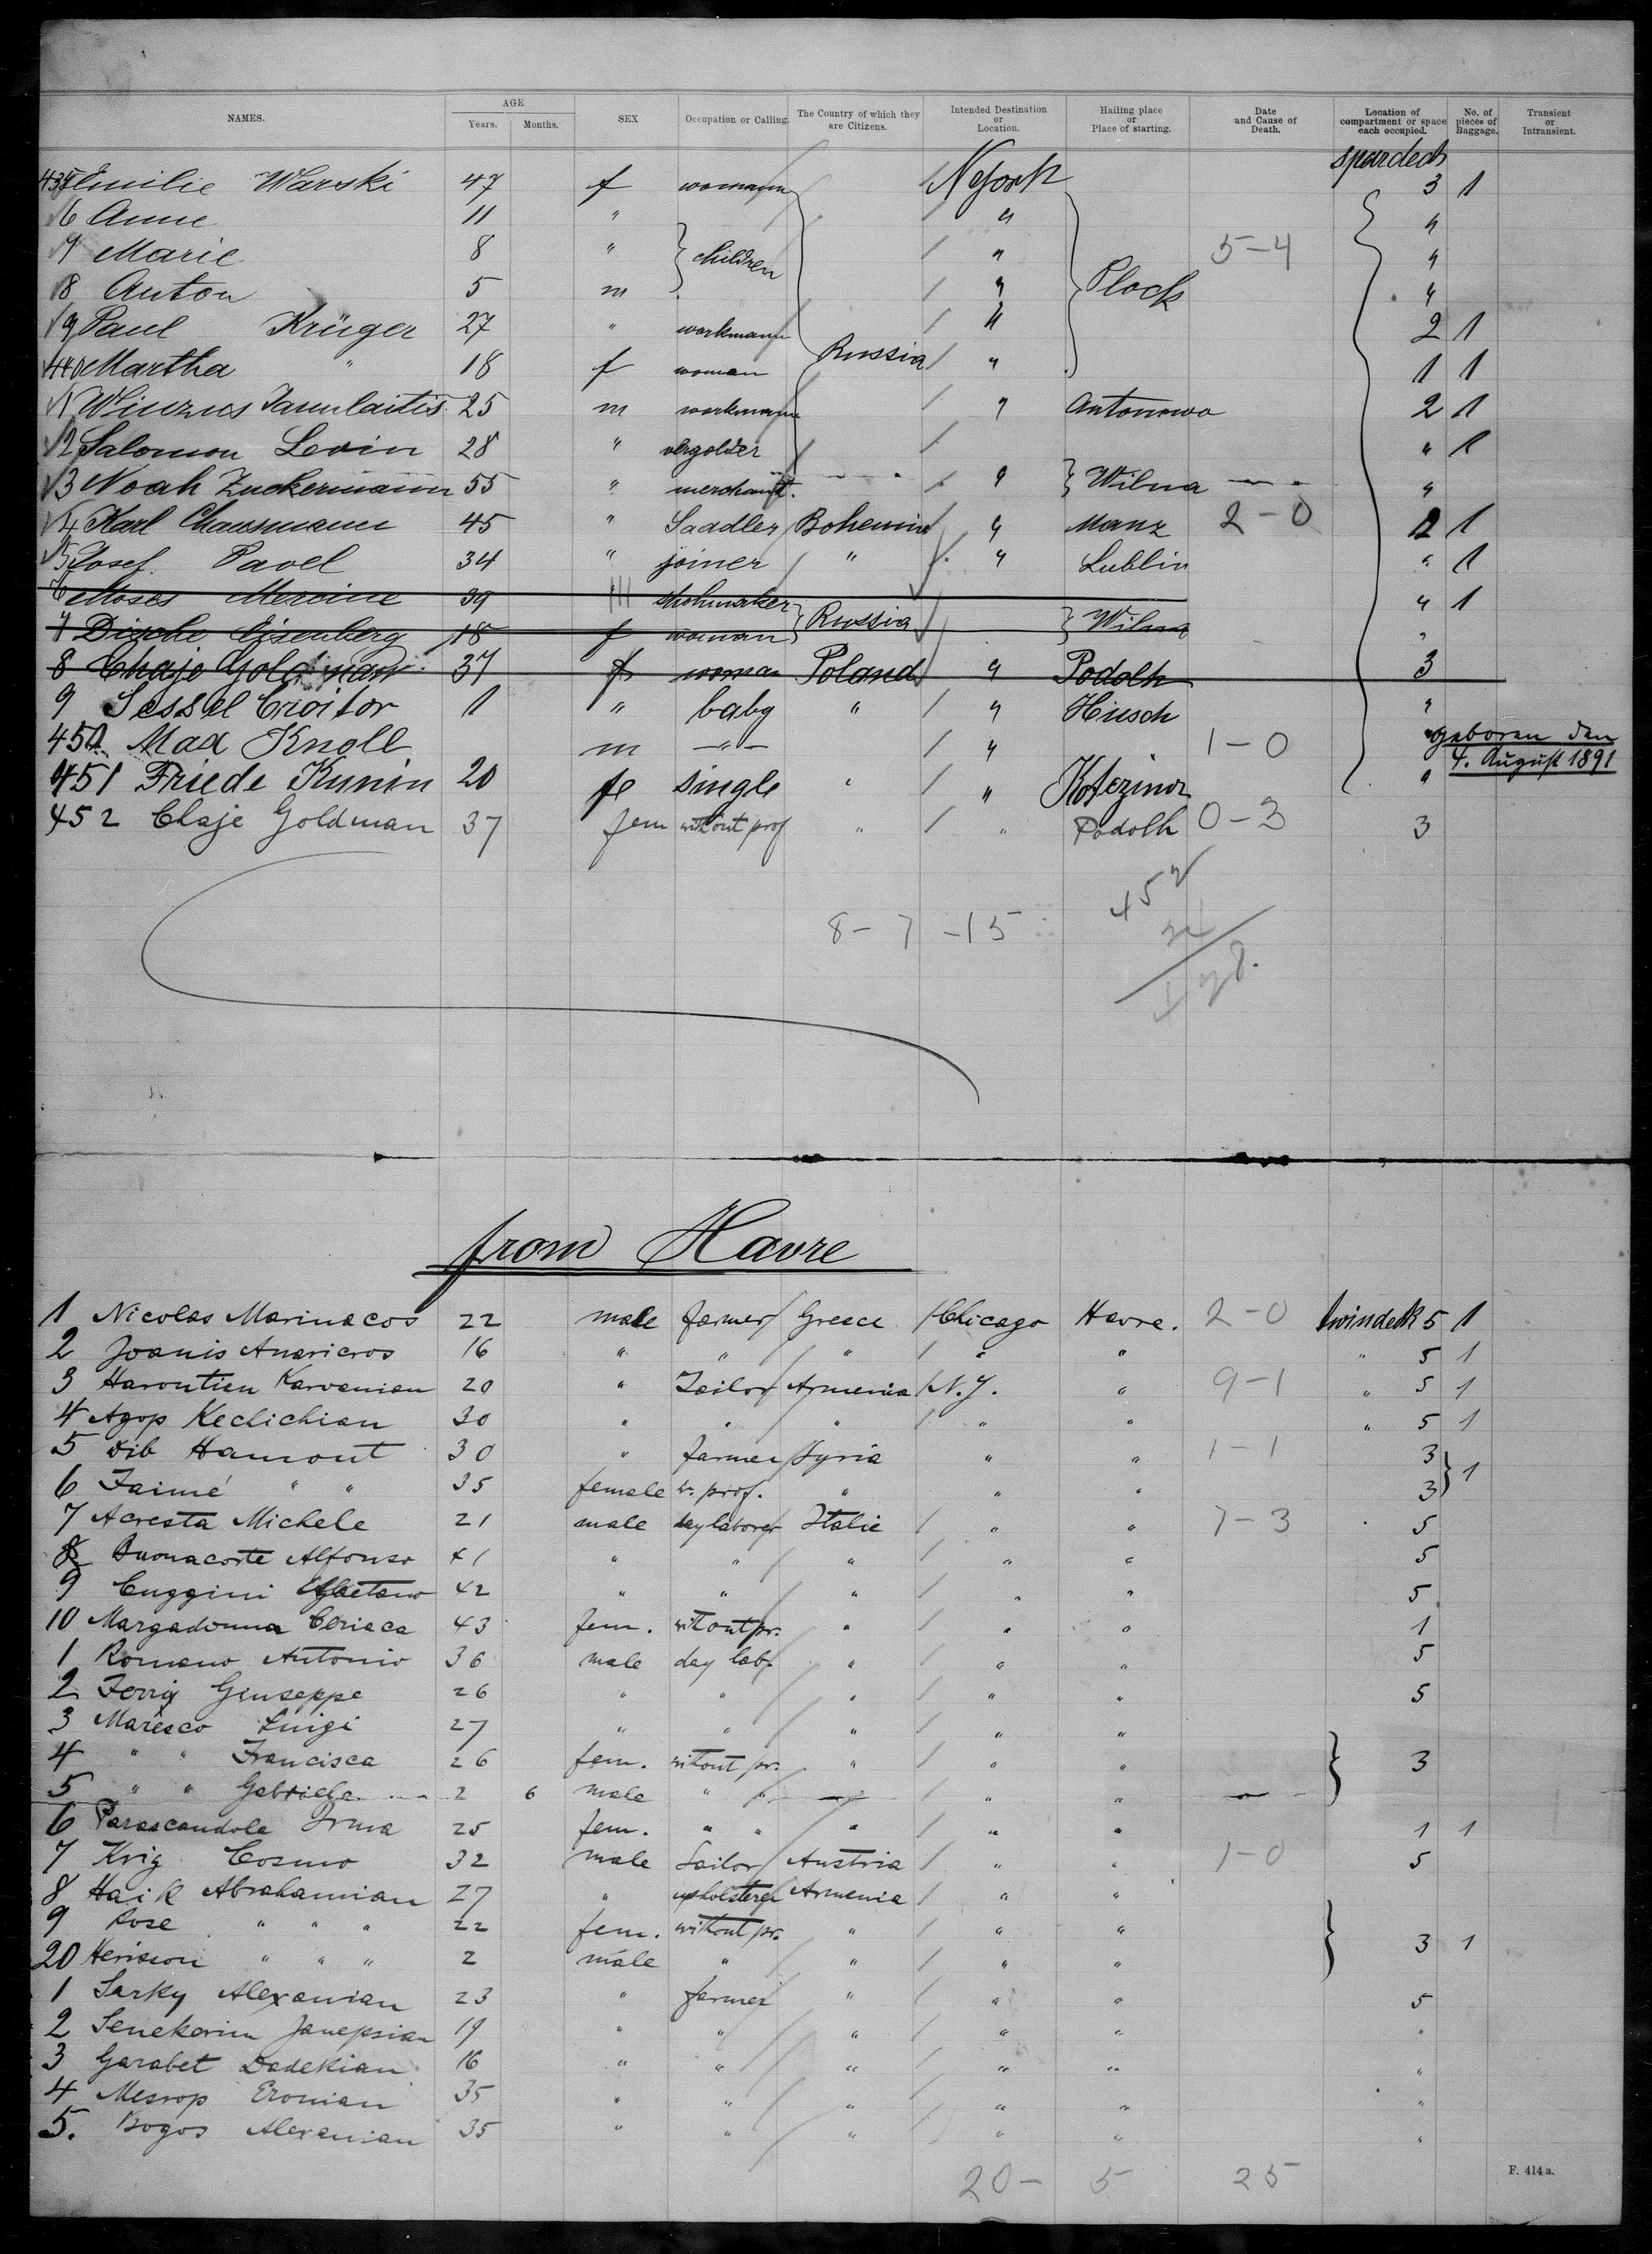 NAMES. AGE Years. Months. SEX Occupation or Calling. The Country of which they are Citizens. Intended Destination or Location. Hailing place or Place of starting. Date and Cause of Death. Location of compartment or space each occupied. No. of pieces of Baggage. Transient or Intransient.
spardeck
435 Emilie Warski 47 f womann N York 3 1
6 Anne 11 " "  "
7 Marie 8 " children " 5-4 "
8 Anton 5 m " Plock "
9 Paul Krüger 27 " workmann " 2 1
440 Martha " 18 f woman Russia " 1 1
1 Winzus Janulaitis 25 m workmann " Antonowo 2 1
2 Salomon Levin 28 " vergolder " 1
3 Noah Zuckermann 55 " merchant. " Wilna "
4 Karl 45 " Saadler Bohemia " Manz 2-0 2 1
5 Josef Pavel 34 " joiner " " Lublin " 1
6 Moses Mercine 39 " shohmaker " 1
7 Dische Eisenberg 18 f woman Russia Wilna "
8 Chaje Goldman 37 f woman Poland " Podolh 3
9 Sessel Croitor 1 " baby " " Husch "
450 Max Knoll m -"- " 1-0 " geboren den
4. August 1891
451 Friede Kunin 20 fe single " " "
452 Chaje Goldman 37 fem without prof " " Podolh 0-3 3
452
8-7-15
from Havre
1 Nicolas Marinacos 22 male farmer Greece Chicago Havre. 2-0 twindeck 5 1
2 Joanis Anaricros 16 " " " " " " 5 1
3 Harontien Karvanian 20 " Tailor Armenia N.Y. " 9-1 " 5 1
4 Agop Kechichian 30 " " " " " " 5 1
5 Dib Hamont 30 " farmer Syria " " 1-1 3
6 Faimé " " 35 female w. prof. " " " 3 1
7 Acresta Michele 21 male daylaborer Italie " " 7-3 5
8 Buonacorte Alfonso 41 " " " " " 5
9 Cuggini Gaetano 42 " " " " " 5
10 Margadonna Ciriaca 43 fem. witout pr. " " " 1
1 Romano Antonio 36 male day lab. " " " 5
2 Ferrig Giuseppe 26 " " " " " 5
3 Maresco Luigi 27 " " " " "
4 " " Francisca 26 fem. witout pr. " " " 3
5 " " Gabriele 2 6 male " " " "
6 Parascandola Irma 25 fem. " " " " " 1 1
7 Krig Cosmo 32 male Sailor Austria " " 1-0 5
8 Haik Abrahamian 27 " upholsterer Armenia " "
9 Rose " " " 22 fem. without pr. " " "
20 Herisson " " " 2 male " " " " 3 1
1 Sarky Alexanian 23 " farmer " " " 5
2 Senekerim Janepsian 19 " " " " " "
3 Garabet Dadekian 16 " " " " " "
4 Mesrop Eronian 35 " " " " " "
5. Bogos Alexanian 35 " " " " " "
20- 5 25
F. 414 a.